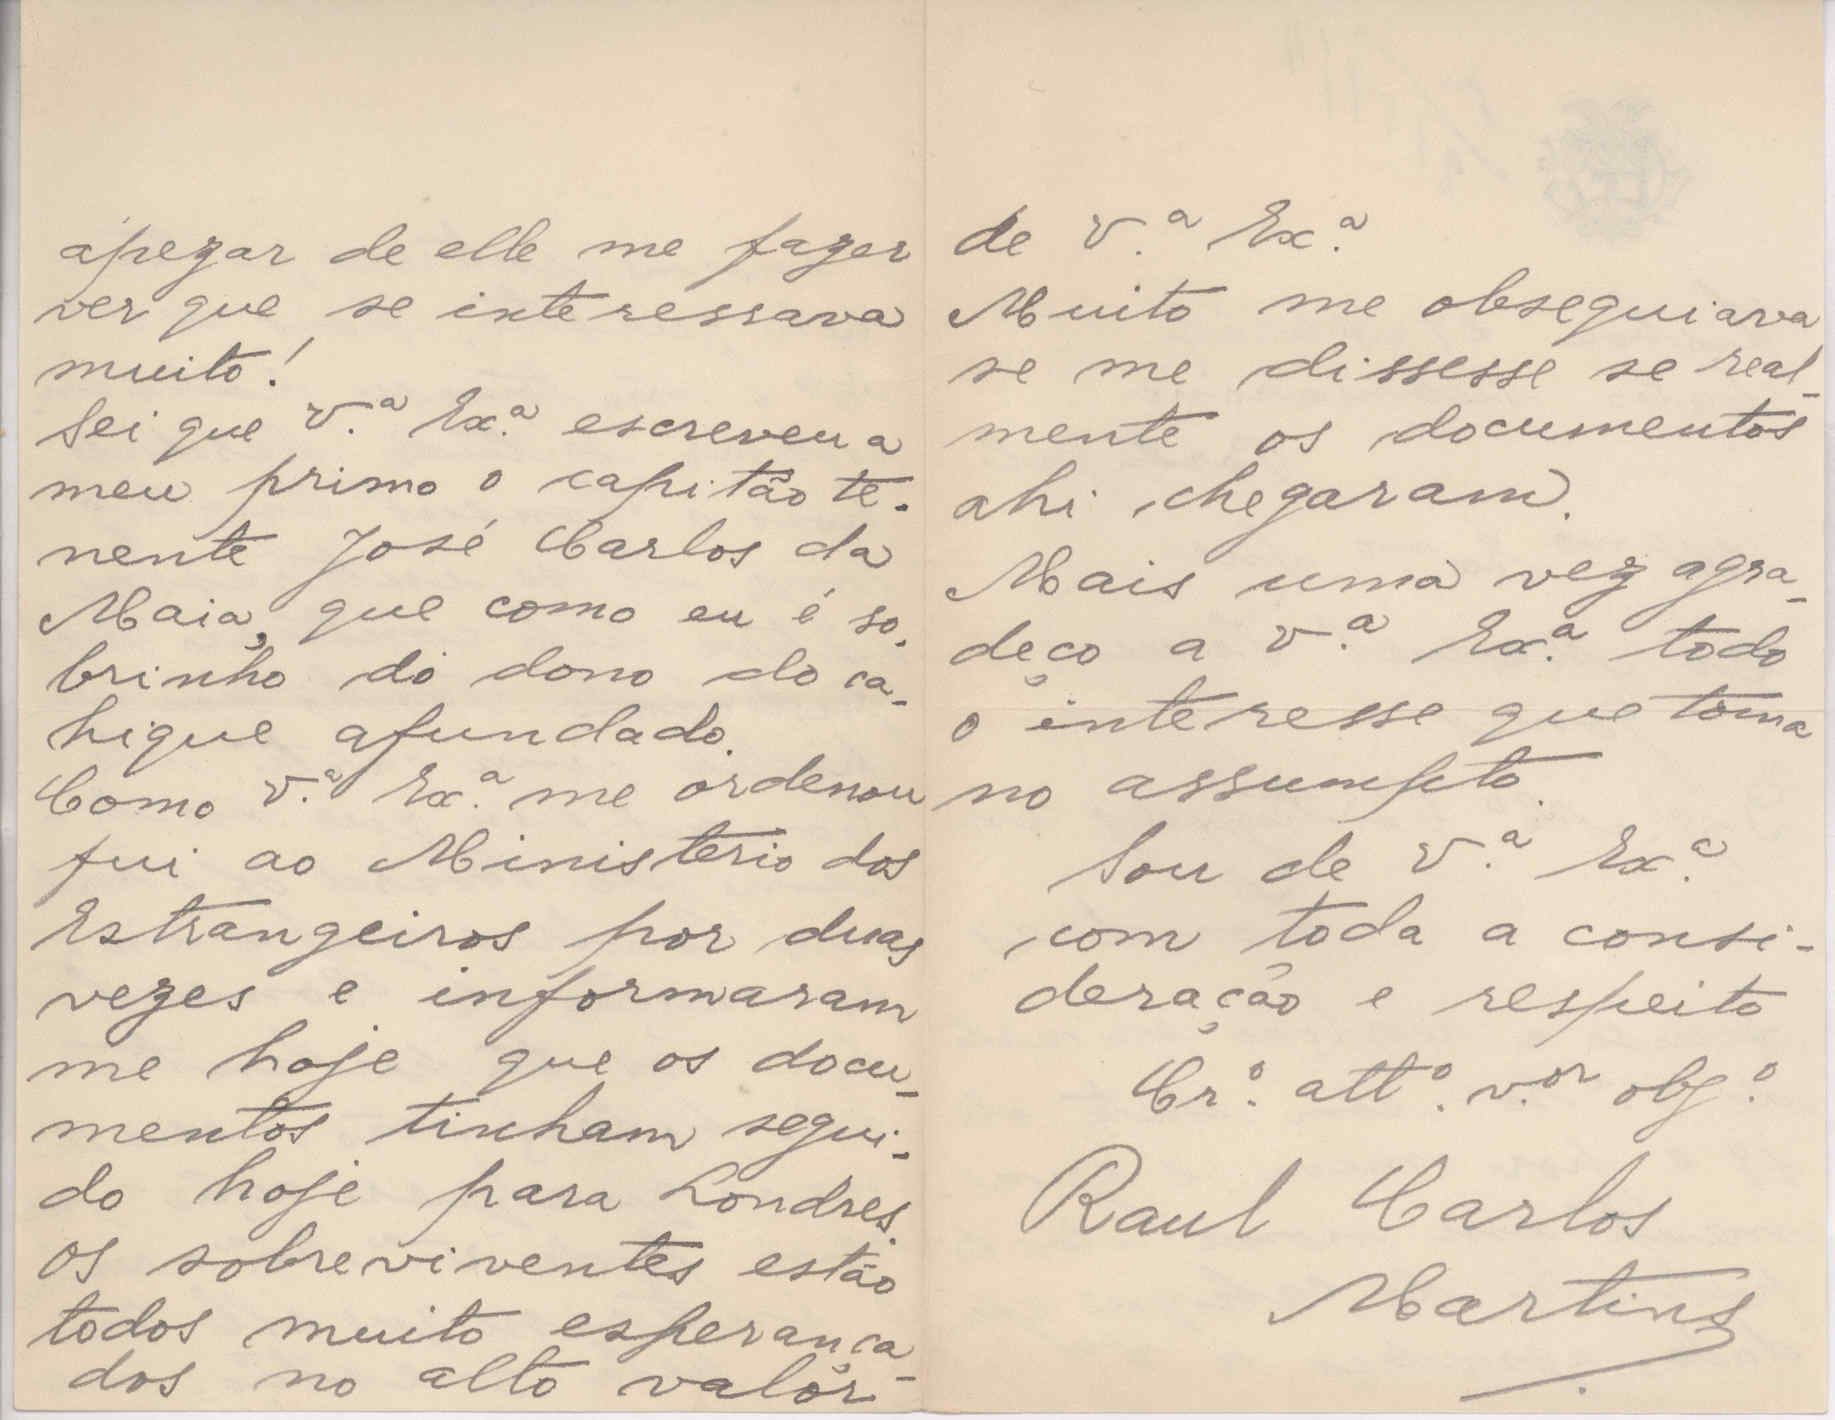 apezar de elle me fazer
ver que se interessava
muito!
Sei que V.ª Ex.ª escreveu a
meu primo o capitão te-
nente José Carlos da
Maia, que como eu é so-
brinho do dono do ca-
hique afundado.
Como V.ª Ex.ª me ordenou
fui ao Ministerio dos
Estrangeiros por duas
vezes e informaram
me hoje que os docu-
mentos tinham segui-
do hoje para Londres.
Os sobreviventes estão
todos muito esperança-
dos no alto valôr
de V.ª Ex.ª
Muito me obsequiava
se me dissesse se real-
mente os documentos
ahi chegaram.
Mais uma vez agra-
deço a V.ª Ex.ª todo
o interesse que toma
no assumpto.
Sou de V.ª Ex.ª
com toda a consi-
deração e respeito
Cr.º att.º v.or obg.º
Raul Carlos
Martins